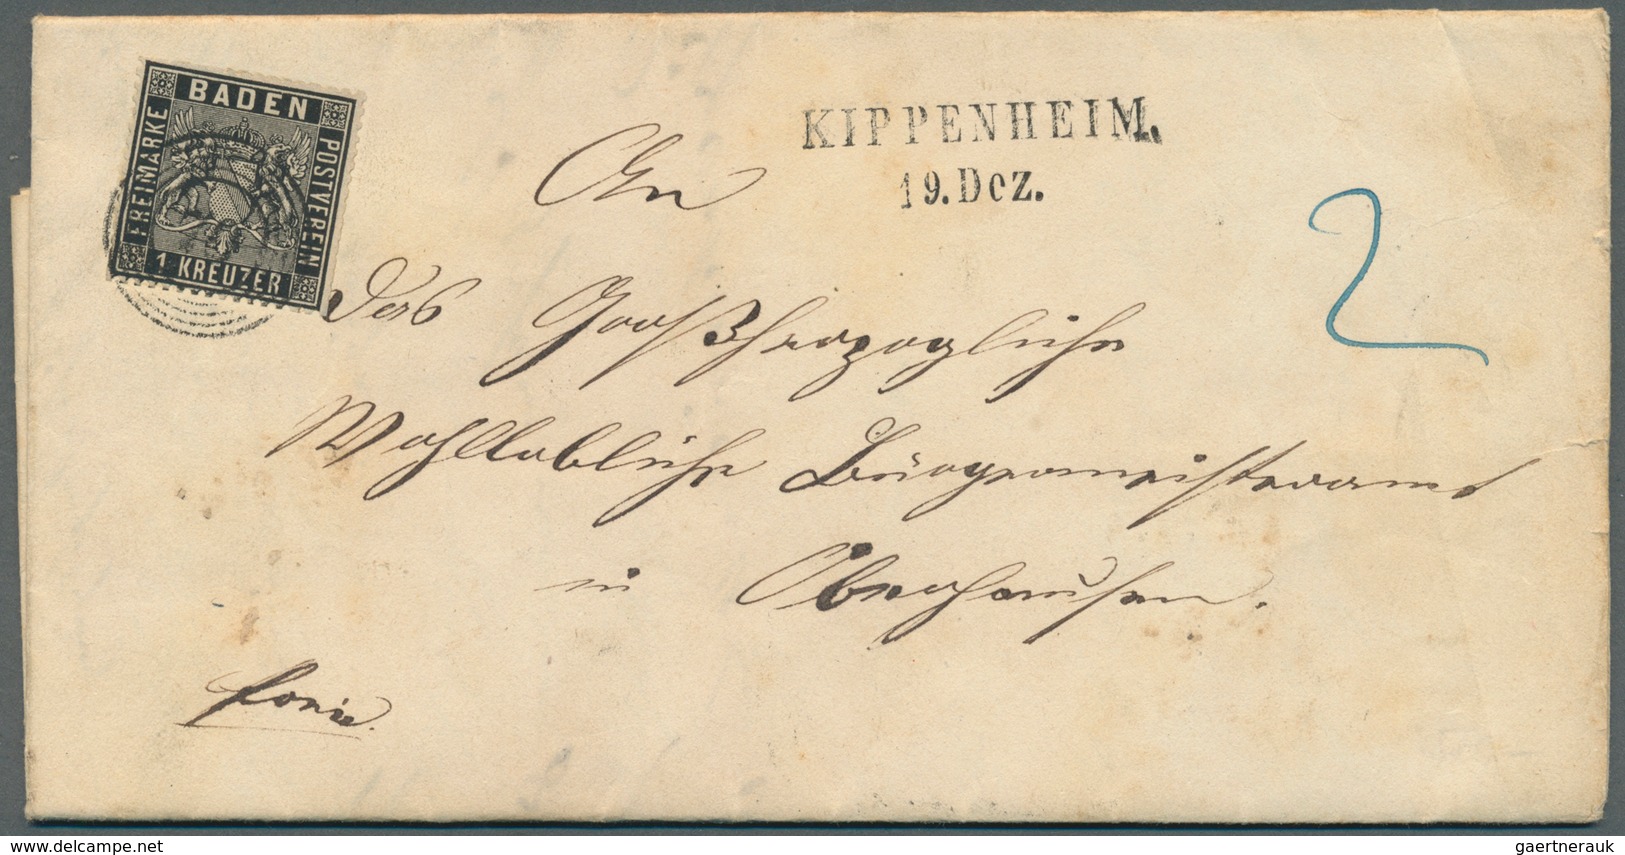 BADEN
FREIMARKE
POSTVEREIN
1 KREUZER
KIPPENHEIM.
19. Dez.
2
An
das Großherzogliche
Wohllöbliche Bürgermeisteramt
in Oberhausen.
delcampe.net
gaertnerauk